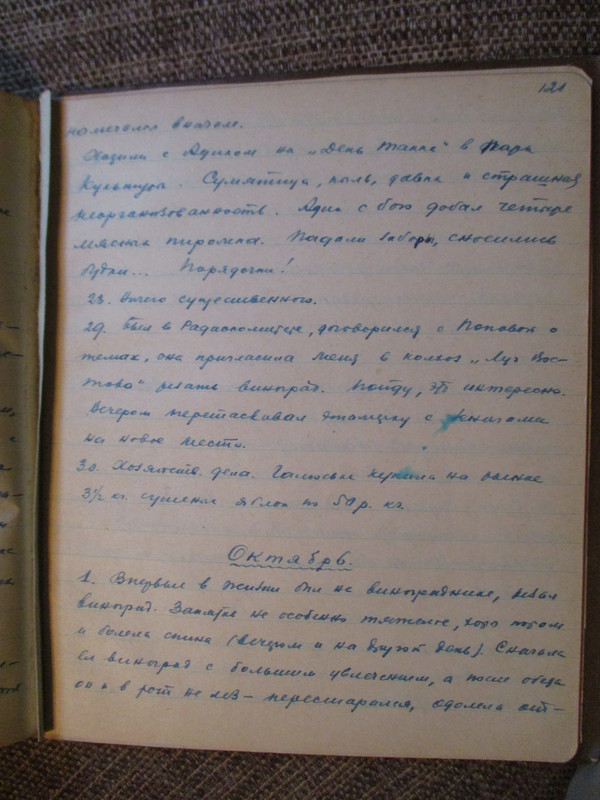 121
намечалось вначале.
Ходили с Адиком на „День танка“ в Парк
Культуры. Суматоха, пыль, давка и страшная
неорганизованность. Адик с бою добыл четыре
мясных пирожка. Падали заборы, сносились
будки... Порядочки!
28. Ничего существенного.
29. Был в Радиокомитете, договорился с Поповой о
темах, она пригласила меня в колхоз „Луч Вос-
тока“ резать виноград. Пойду, это интересно.
Вечером перетаскивал этажерку с книгами
на новое место.
30. Хозяйств. дела. Галюська купила на рынке
3½ кг. сушеных яблок по 50 р. кг.
Октябрь.
1. Впервые в жизни был на винограднике, резал
виноград. Занятие не особенно тяжелое, хотя потом
и болела спина (вечером и на другой день). Сначала
ел виноград с большим увлечением, а после обеда
он и в рот не лез – перестарался, одолела от-